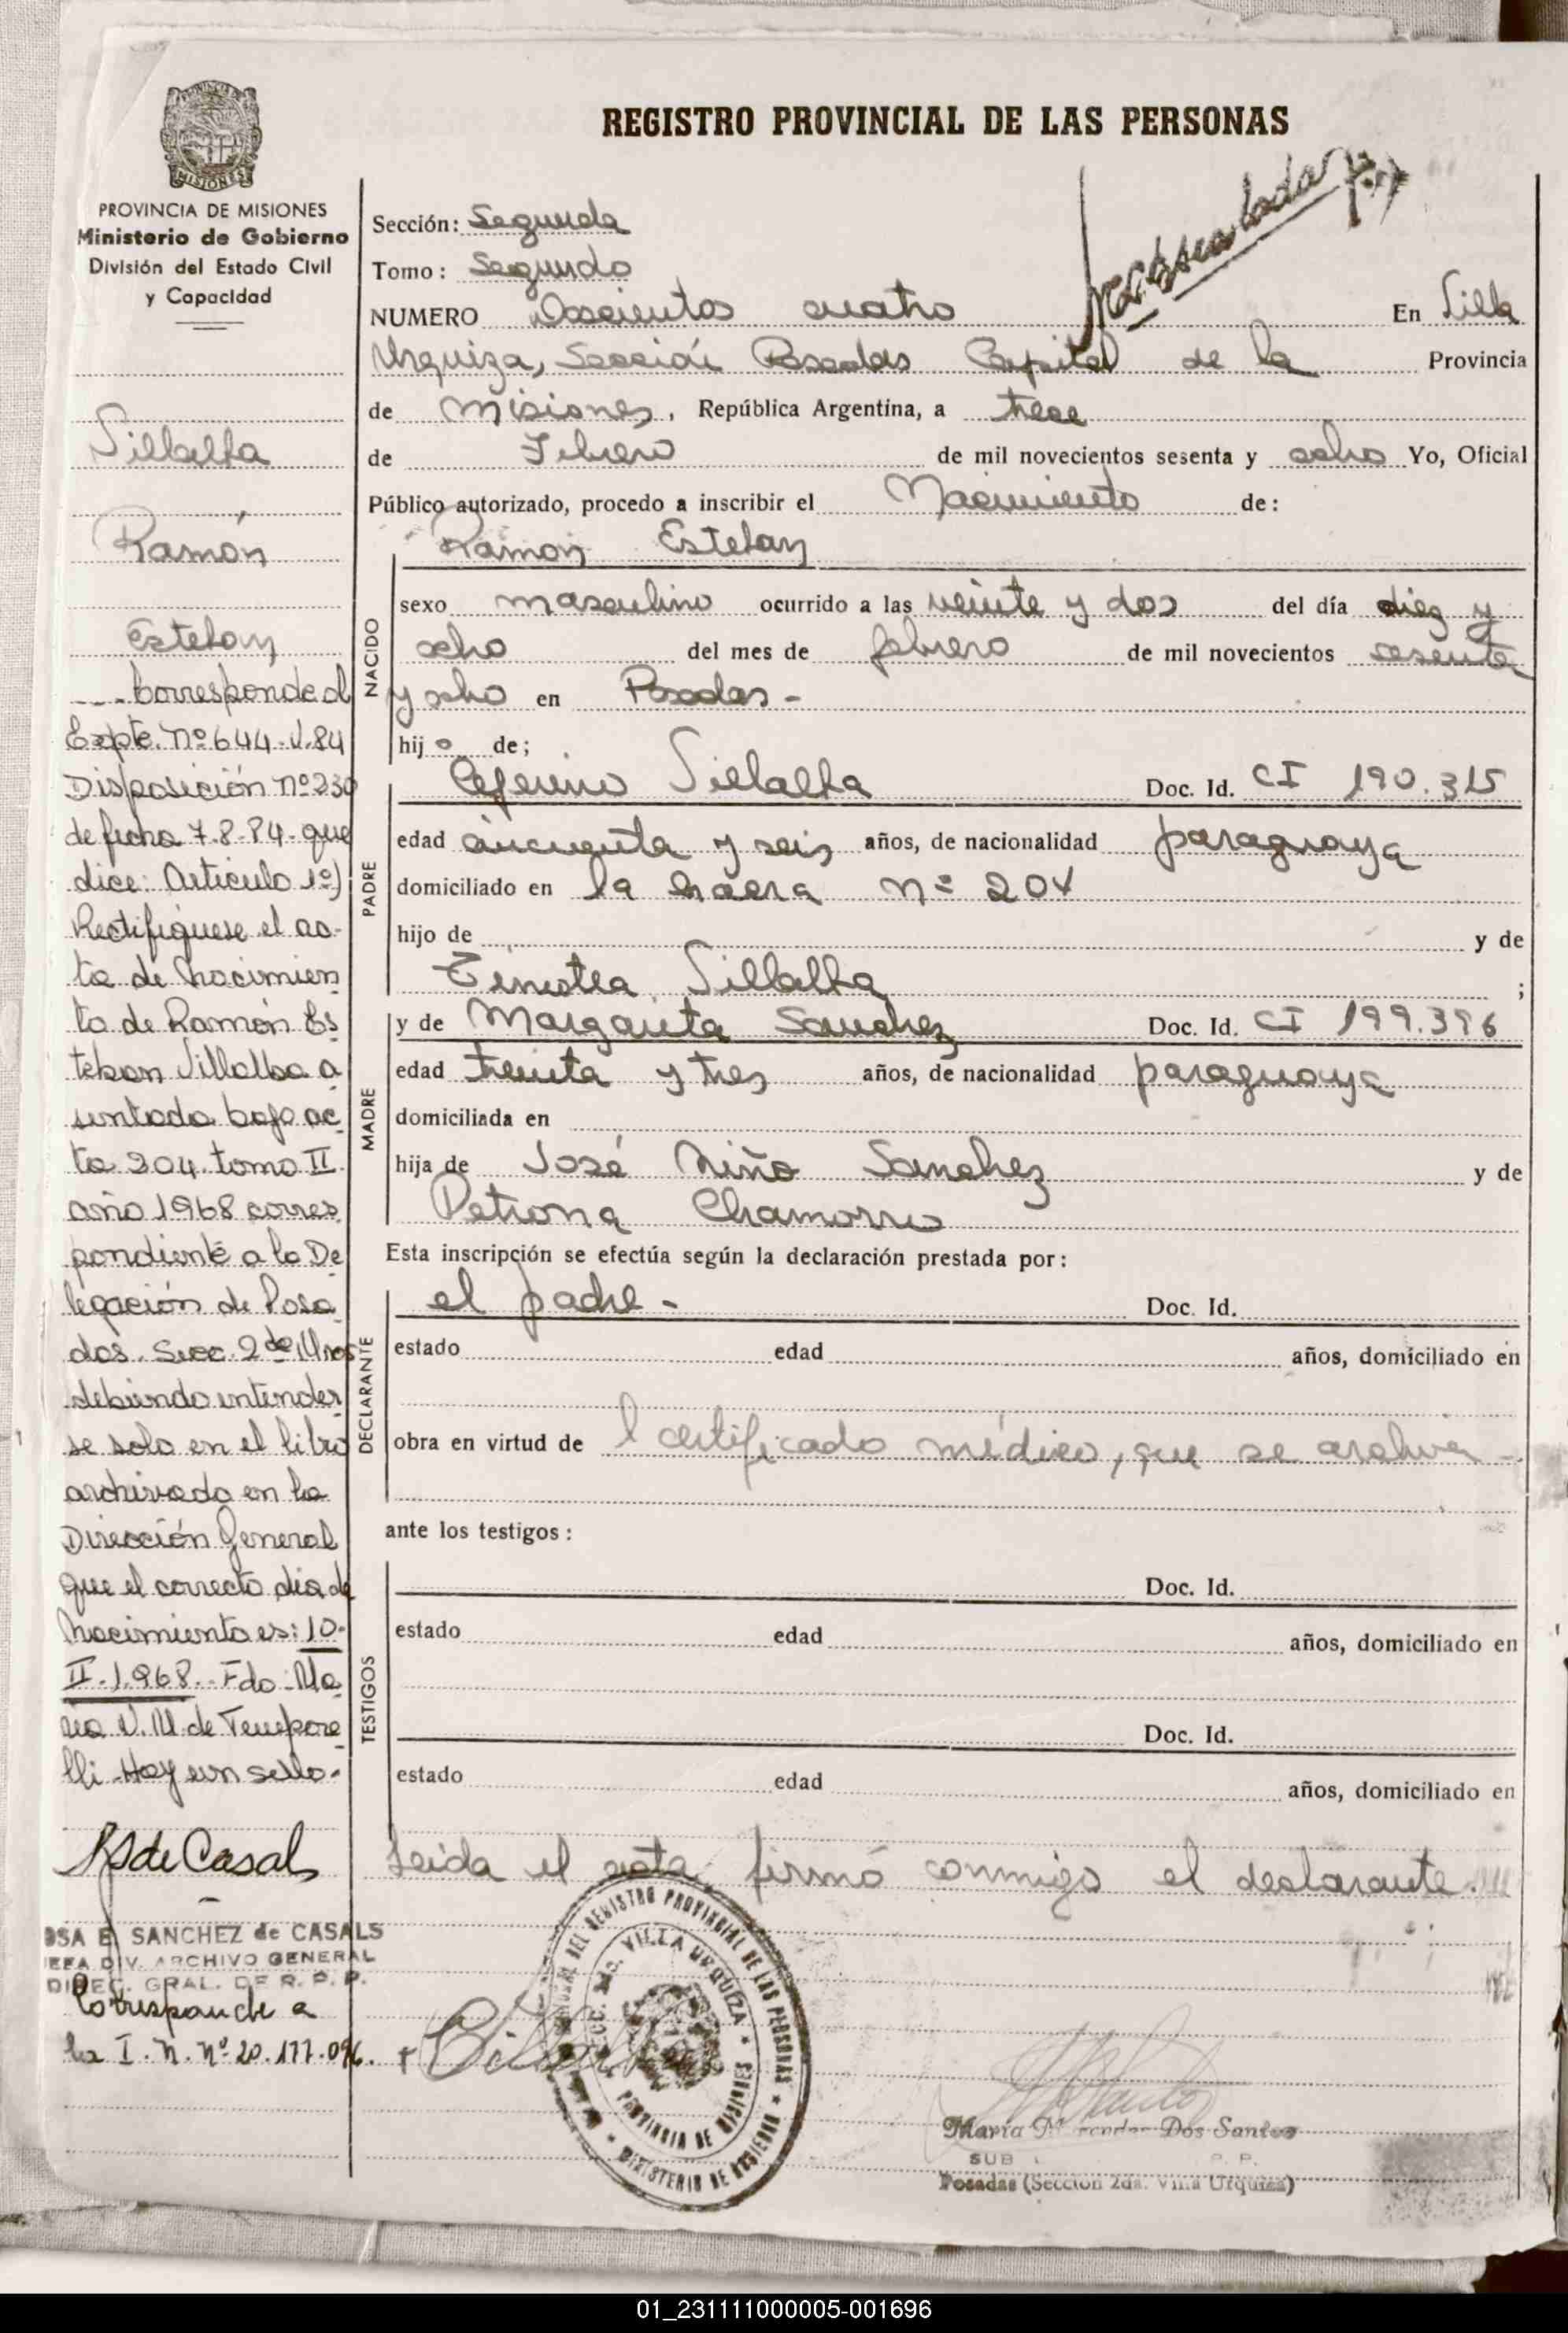 REGISTRO PROVINCIAL DE LAS PERSONAS
MISIONES
PROVINCIA DE MISIONES
Ministerio de Gobierno
División del Estado Civil
y Capacidad
Villalba
Ramón
Esteban
---- Corresponde al
Expte. Nº 644-V.84
Disposición nº 230
de fecha 7-8-84- que
dice: Articulo 1º)
Rectifiquese el ac-
ta de nacimien
to de Ramón Es
teban Villalba a
sentada bajo ac
ta 204. tomo II.
año 1968 corres
pondiente a la De
legación de Posa
das. Secc. 2da
debiendo entender
se solo en el libro
archivado en la
Dirección General
que el correcto dia de
nacimiento es: 10-
II-1.968.- Fdo: Ma
ria V. M. de Tempore
lli. Hay un sello.
RS de Casals
OSA E. SANCHEZ de CASALS
JEFA DIV. ARCHIVO GENERAL
DIREC. GRAL. DE R. P. P.
Corresponde a
la I. N. Nº 20.177.096.
Sección: Segunda
Tomo: Segundo
NUMERO Doscientos cuatro En Villa
Urquiza, Sección Posadas Capital de la Provincia
de Misiones, República Argentina, a trece
de Febrero de mil novecientos sesenta y ocho Yo, Oficial
Público autorizado, procedo a inscribir el Nacimiento de:
NACIDO
Ramon Esteban
sexo masculino ocurrido a las veinte y dos del día diez y
ocho del mes de febrero de mil novecientos sesenta
y ocho en Posadas -
hijo de;
PADRE
Ceferino Villalba Doc. Id. CI 190.315
edad cincuenta y seis años, de nacionalidad paraguaya
domiciliado en la chacra nº 204
hijo de y de
Villalba ;
MADRE
y de Margarita Sanchez Doc. Id. CI 199.396
edad treinta y tres años, de nacionalidad paraguaya
domiciliada en
hija de José Niño Sanchez y de
Petrona Chamorro
Esta inscripción se efectúa según la declaración prestada por:
DECLARANTE
el padre - Doc. Id.
estado edad años, domiciliado en
obra en virtud de l certificado médico, que se archiva -
ante los testigos:
TESTIGOS
Doc. Id.
estado edad años, domiciliado en
Doc. Id.
estado edad años, domiciliado en
Leida el acta, firmó conmigo el declarante.
DEL REGISTRO PROVINCIAL DE LAS PERSONAS
SECC. 2da. VILLA URQUIZA
PROVINCIA DE MISIONES
MINISTERIO DE GOBIERNO
María Dos Santos
SUB P. P.
Posadas (Sección 2da. Villa Urquiza)
01_231111000005-001696